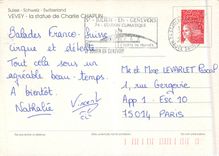 Suisse - Schweiz - Switzerland
VEVEY - la statue de Charlie CHAPLIN
Balades Franco-Suisse
cirque et détente
Tout cela sous un
agréable beau-temps.
A bientôt
Nathalie Vincent
ST JULIEN-EN-GENEVOIS
STATION CLIMATIQUE
Mr et Mme LEVARLET Pascal
1, rue Gergovie
App 1 - Esc 10
75014 PARIS